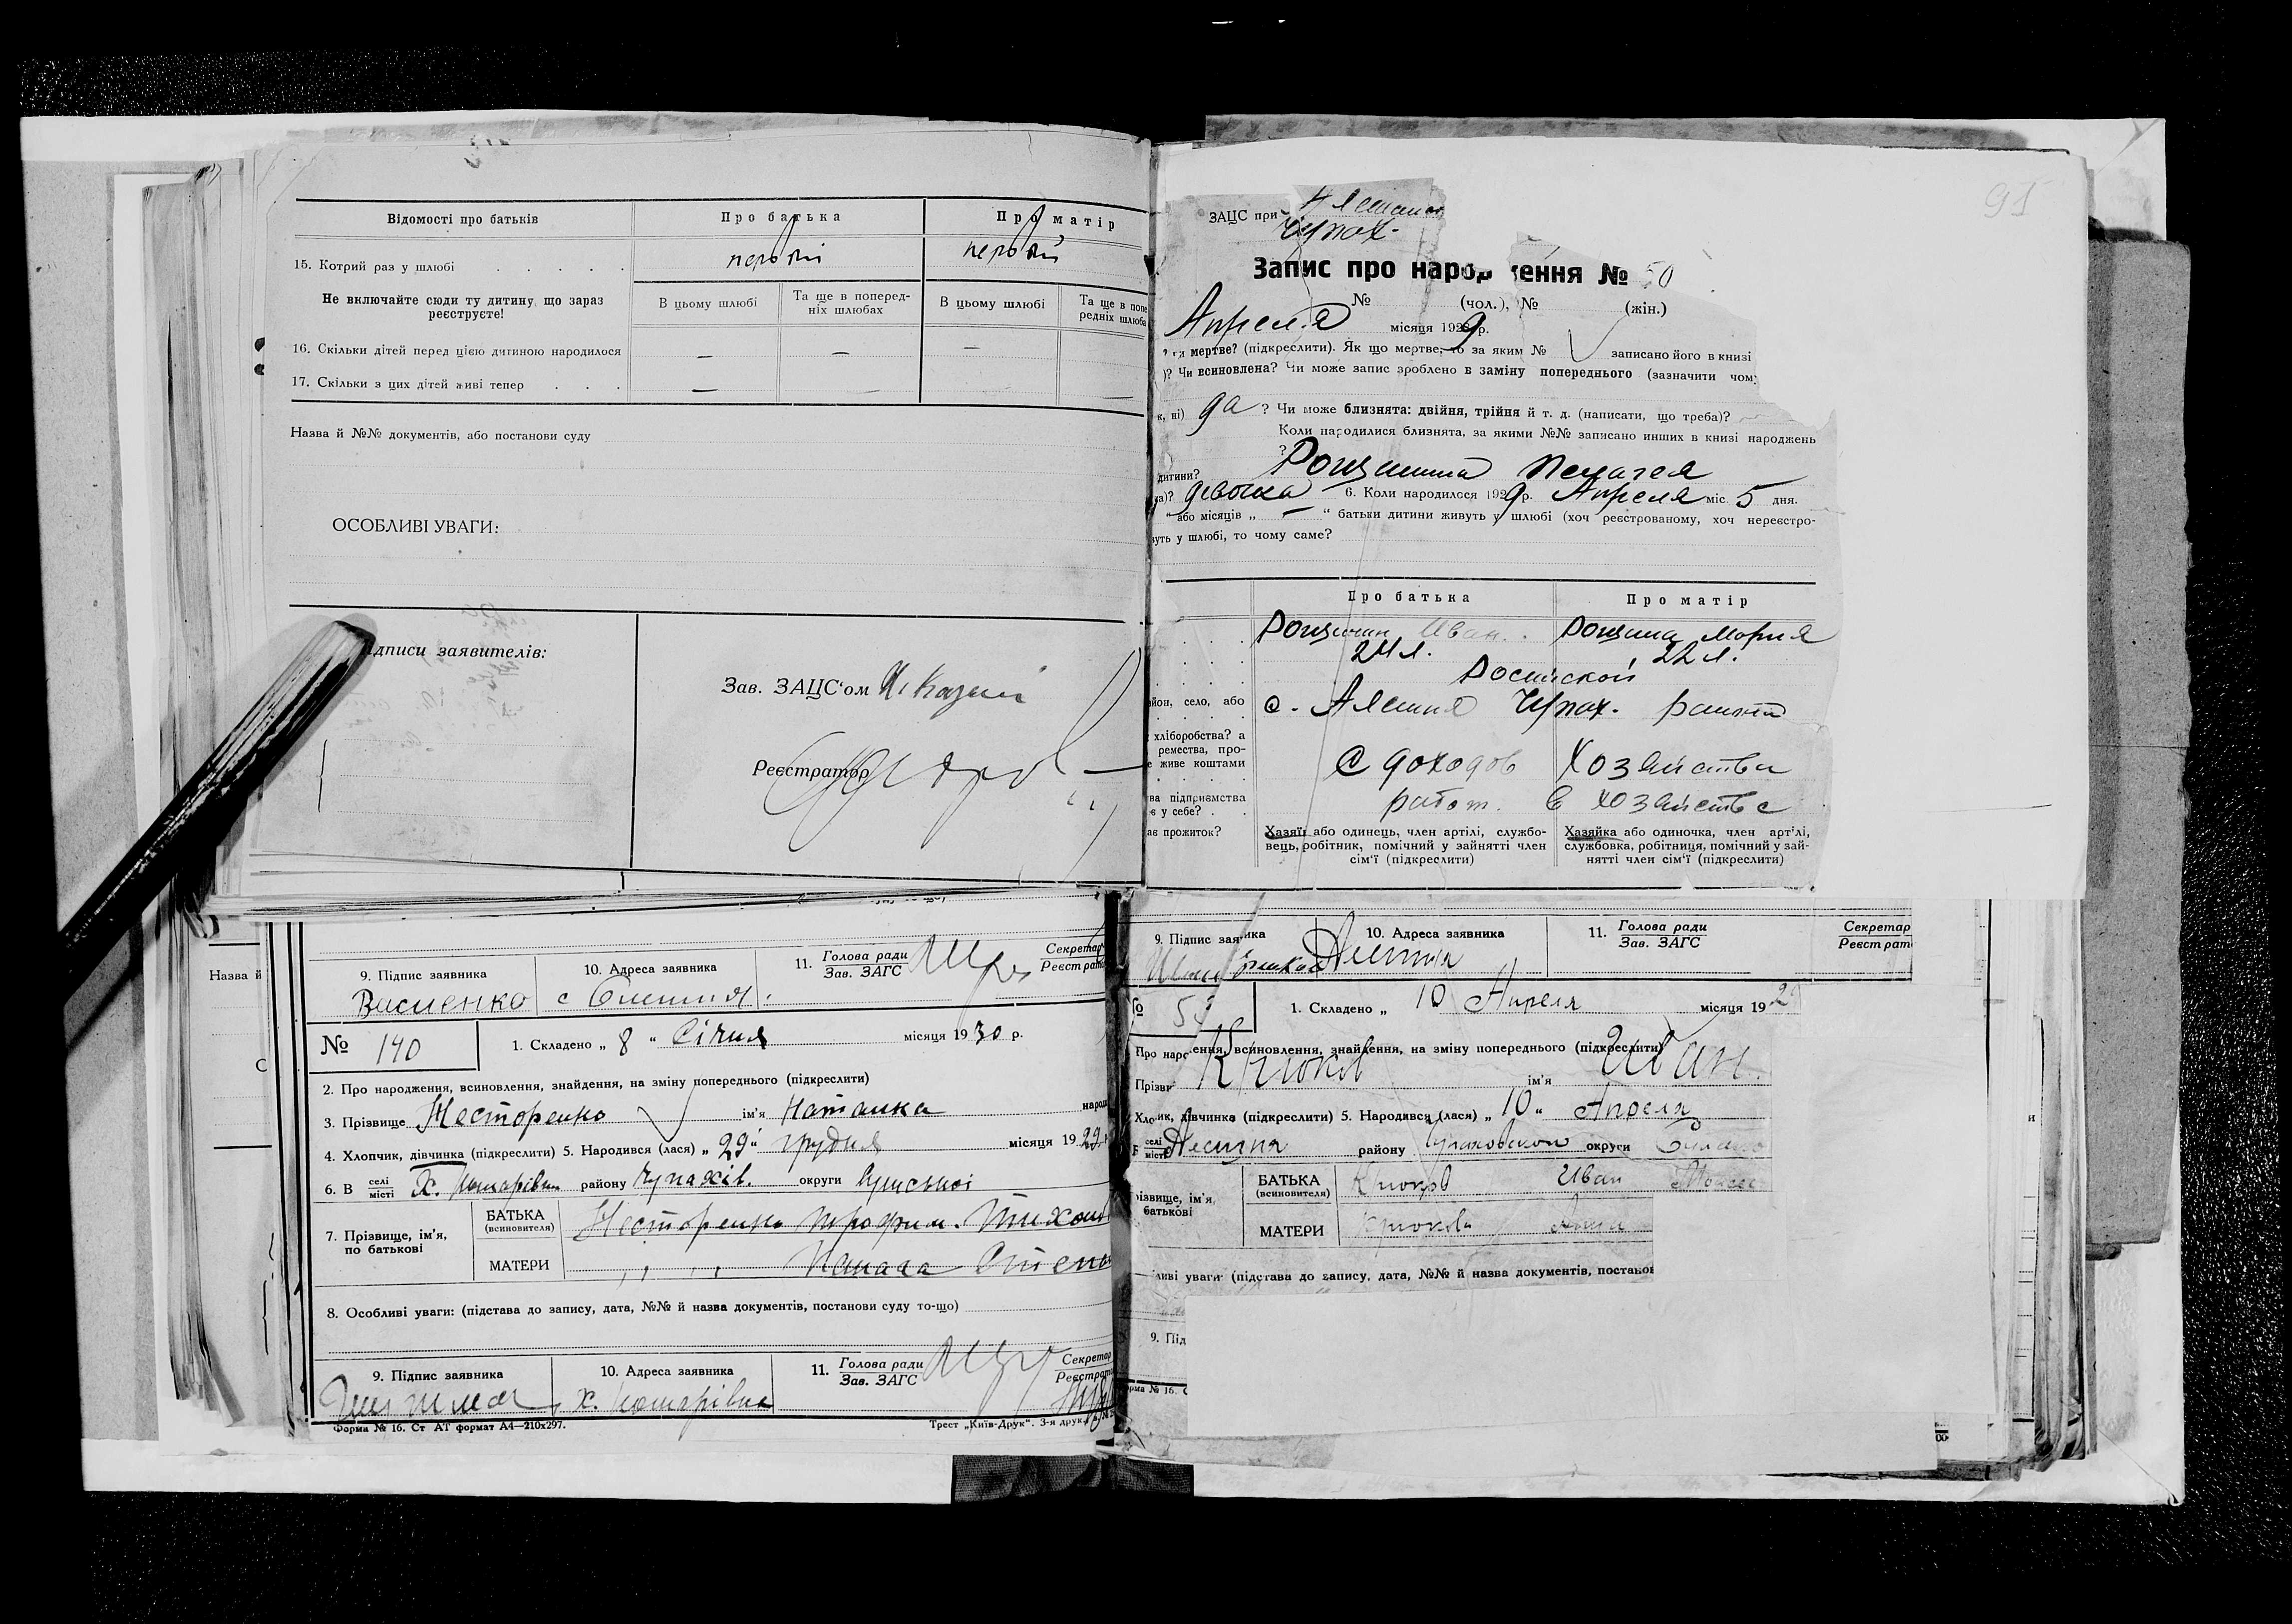 Відомості про батьків
Про батька
Про матір
15. Котрий раз у шлюбі . . . . .
первый
первый
Не включайте сюди ту дитину, що зараз реєструєте!
В цьому шлюбі
Та ще в поперед-
ніх шлюбах
В цьому шлюбі
Та ще в попе
редніх шлюба
16. Скільки дітей перед цією дитиною народилося — — —
17. Скільки з цих дітей живі тепер . . . — — —
Назва й №№ документів, або постанови суду
ОСОБЛИВІ УВАГИ:
ідписи заявителів:
Зав. ЗАЦС'ом
Реєстратор
91
ЗАЦС при
Чупах.
Запис про народження № 50
№ (чол.), № (жін.)
Апреля місяця 1929 р.
мертве? (підкреслити). Як що мертве, то за яким № записано його в книзі
)? Чи всиновлена? Чи може запис зроблено в заміну попереднього (зазначити чому
к, ні) да ? Чи може близнята: двійня, трійня й т. д. (написати, що треба)?
Коли народилися близнята, за якими №№ записано инших в книзі народжень
?
дитини? Рощина Пелагея
ка)? девочка 6. Коли народилося 1929 р. Апреля міс. 5 дня.
" або місяців „ — " батьки дитини живуть у шлюбі (хоч реєстрованому, хоч нереєстро-
вуть у шлюбі, то чому саме?
Про батька
Про матір
Рощин Иван
Рощина Мария
24 л.
22 л.
айон, село, або
с. Алешня Чупах. района
хліборобства? а
ремества, про-
е живе коштами
С доходов хозяйства
ва підприємства
є у себе? .
работ. в хозяйстве
ає прожиток?
Хазяїн або одинець, член артілі, службо-
вець, робітник, помічний у зайнятті член
сім'ї (підкреслити)
Хазяйка або одиночка, член артілі,
службовка, робітниця, помічний у зай-
нятті член сім'ї (підкреслити)
Назва й
9. Підпис заявника
Василенко
10. Адреса заявника
с Олешня.
11. Голова ради
Зав. ЗАГС
Секретар
Реєстрато
№ 140
1. Складено „ 8 " Січня місяця 1930 р.
2. Про народження, всиновлення, знайдення, на зміну попереднього (підкреслити)
3. Прізвище Несторенко ім'я Наталка народ
4. Хлопчик, дівчинка (підкреслити) 5. Народився (лася) „ 29 " грудня місяця 1929
6. В селі
місті Х. Комарівка району Чупахів. округи Сумської
7. Прізвище, ім'я,
по батькові
БАТЬКА
(всиновителя)
Несторенко Трофим Тихон
МАТЕРИ
8. Особливі уваги: (підстава до запису, дата, №№ й назва документів, постанови суду то-що)
9. Підпис заявника
10. Адреса заявника
х. Комарівка
11. Голова ради
Зав. ЗАГС
Секретар
Реєстрато
Форма № 16. Ст АТ формат А4—210х297.
Трест „Київ-Друк". 3-я друк.
9. Підпис заявника
10. Адреса заявника
Алешня
11. Голова ради
Зав. ЗАГС
Секретар
Реєстрат
№
1. Складено „ 10 Апреля місяця 192
Про народження, всиновлення, знайдення, на зміну попереднього (підкреслити)
Прізви Крюков ім'я Иван.
Хлопчик, дівчинка (підкреслити) 5. Народився (лася) „ 10 " Апреля
селі
місті Алешня району Чупаховского округи
різвище, ім'я,
батькові
БАТЬКА
(всиновителя)
Крюков Иван
МАТЕРИ
Крюкова Анна
ливі уваги: (підстава до запису, дата, №№ й назва документів, постанов
9. Під
рма № 16. С